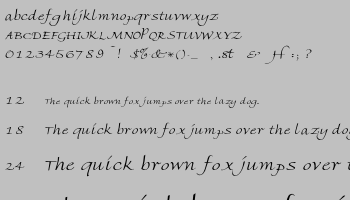 abcdefghijklmnopqrstuvwxyz
ABCDEFGHIJKLMNOPQRSTUVWXYZ
0123456789 ! $% &*()-_ , .st & H :; ?
12 The quick brown fox jumps over the lazy dog.
18 The quick brown fox jumps over the lazy do
24 The quick brown fox jumps over t